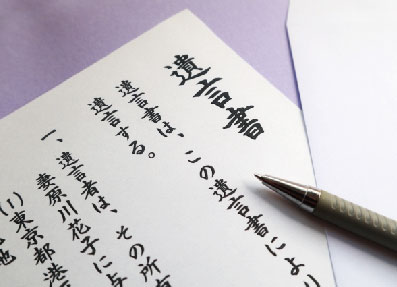 遺言書
遺言書は、この遺言書により
遺言する。
一、遺言者は、その所有
妻原川花子に与
(1)東京都港
地